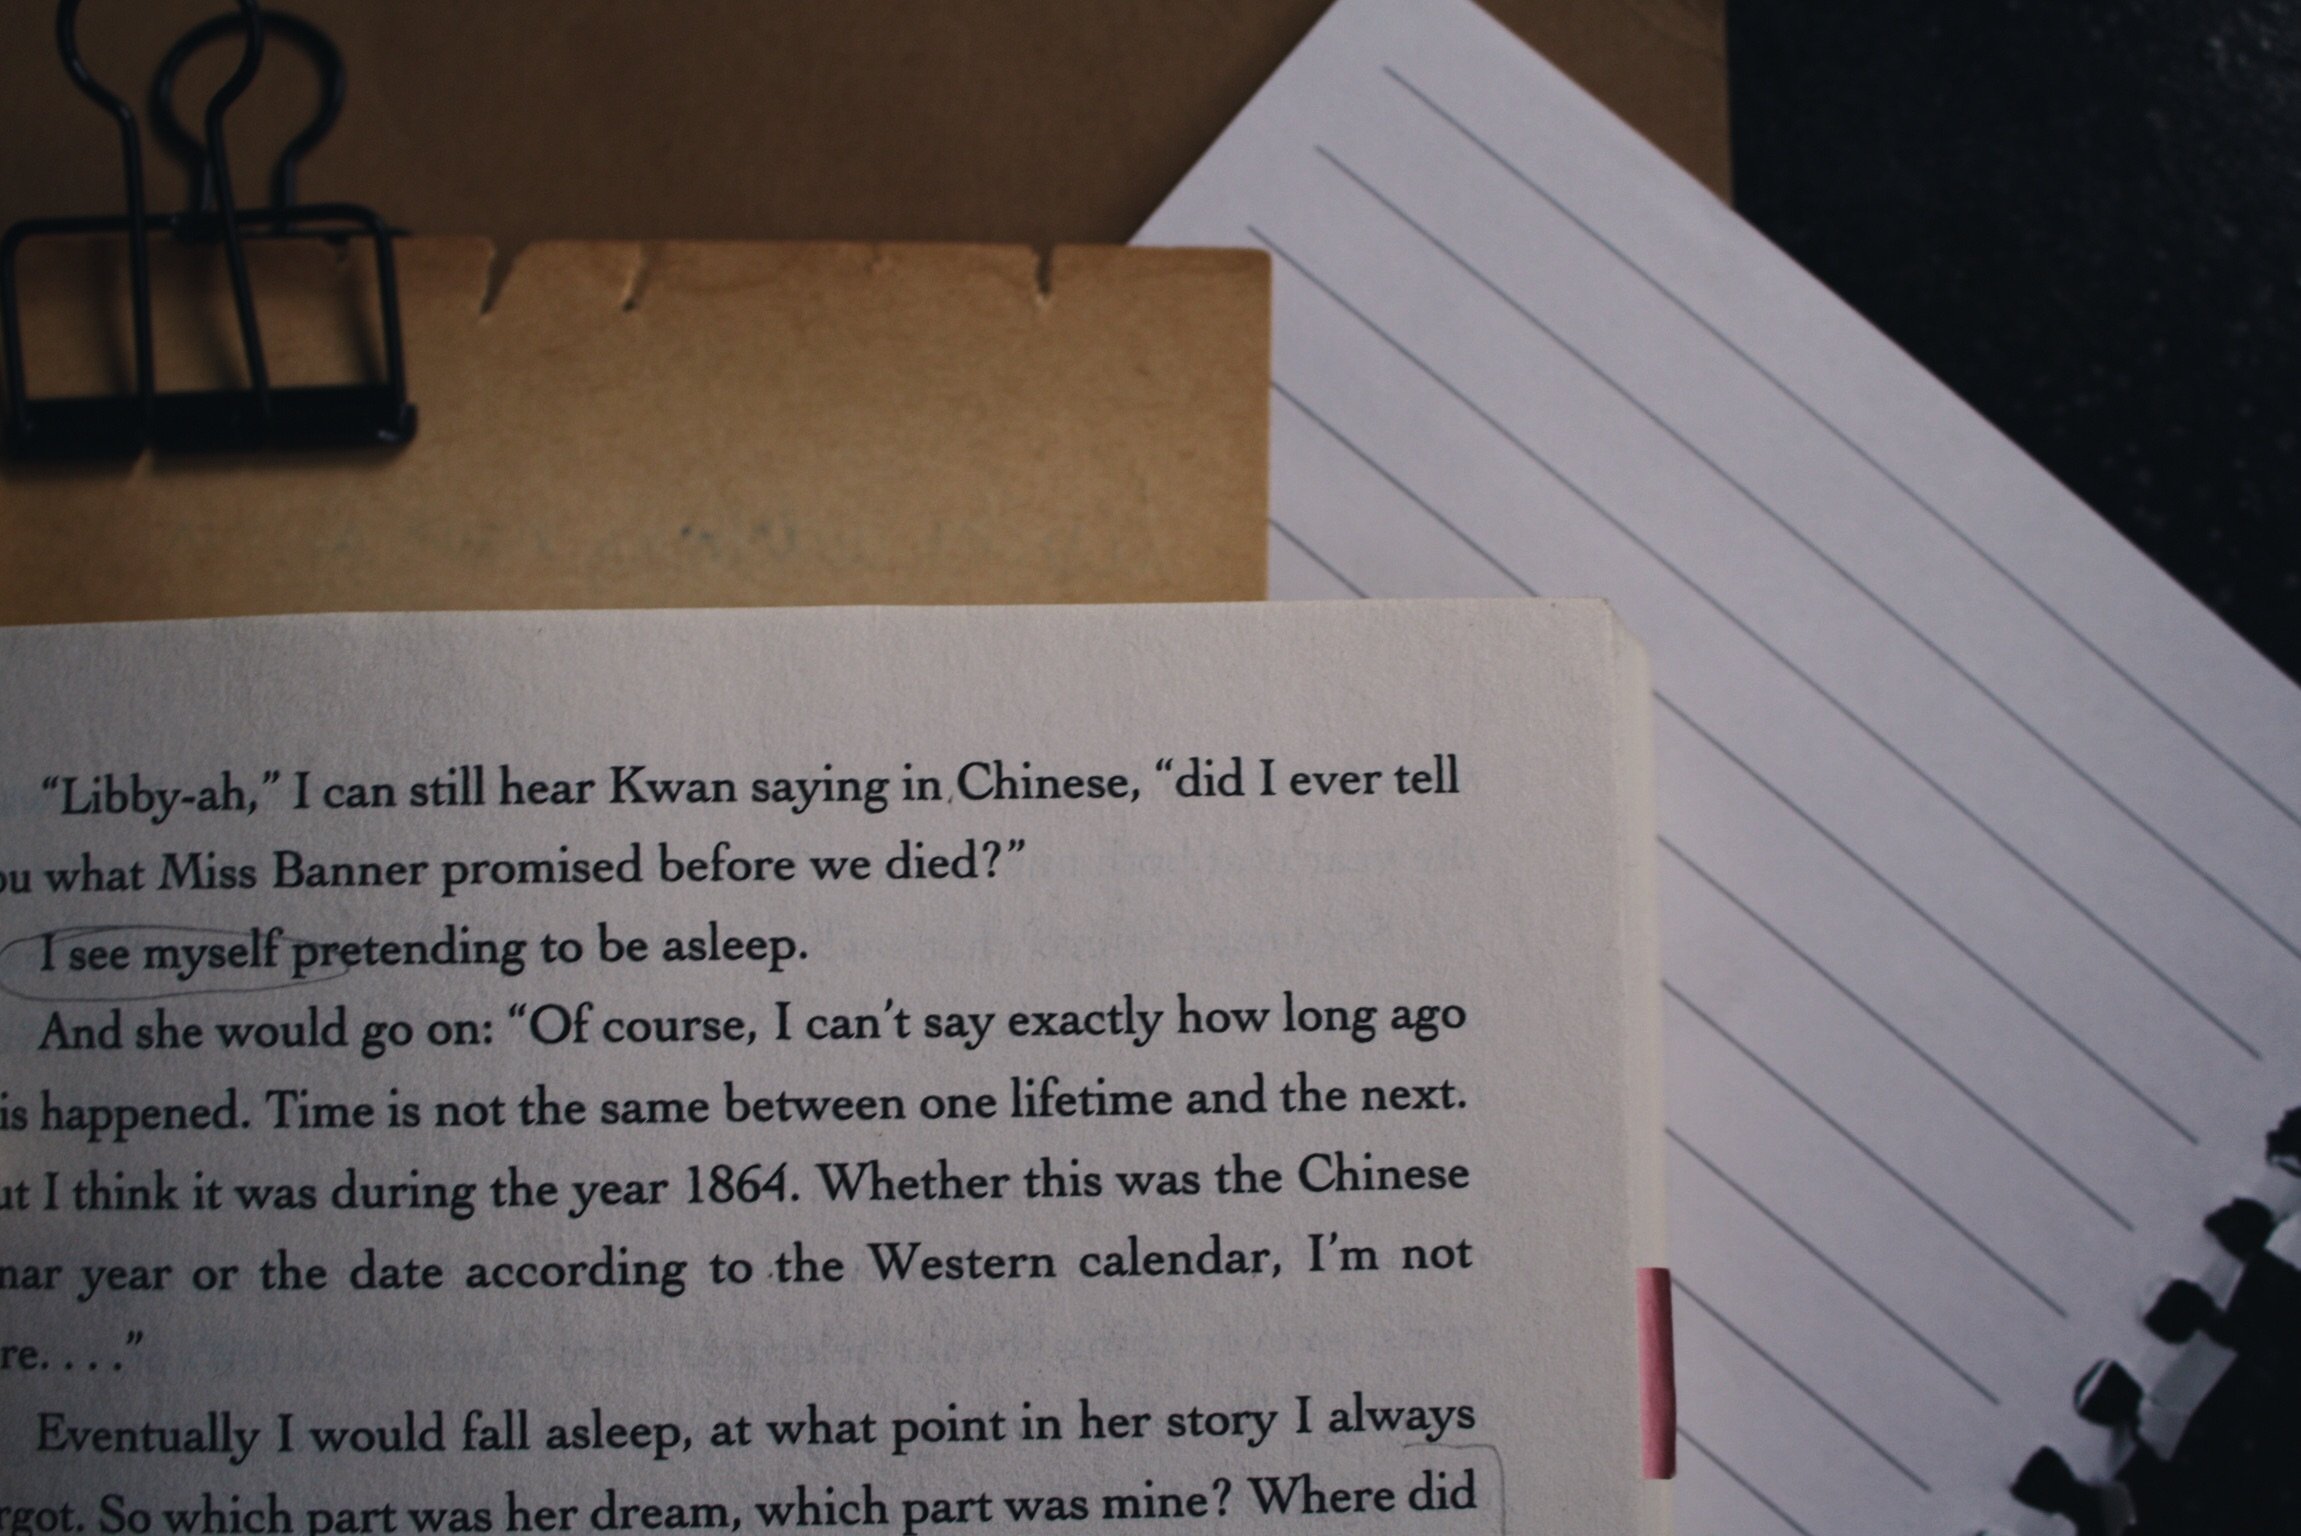 “Libby-ah,” I can still hear Kwan saying in Chinese, “did I ever tell
ou what Miss Banner promised before we died?”
I see myself pretending to be asleep.
And she would go on: “Of course, I can’t say exactly how long ago
is happened. Time is not the same between one lifetime and the next.
ut I think it was during the year 1864. Whether this was the Chinese
nar year or the date according to the Western calendar, I’m not
re. . . .”
Eventually I would fall asleep, at what point in her story I always
rgot. So which part was her dream, which part was mine? Where did